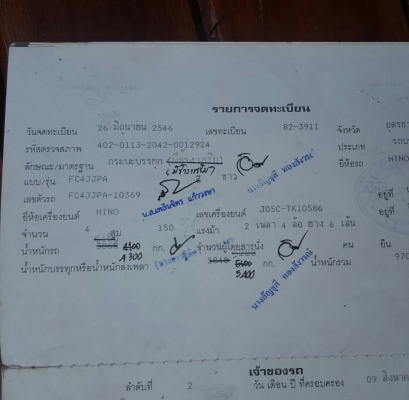 รายการจดทะเบียน
วันจดทะเบียน 26 มิถุนายน 2546 เลขทะเบียน 82-3911 จังหวัด อุดรธา
รหัสตรวจสภาพ 402-0113-2042-0012924 ประเภท รถบ
ลักษณะ/มาตรฐาน กระบะบรรทุก สี ขาว ยี่ห้อรถ HINO
แบบ/รุ่น FC4JJPA
เลขตัวรถ FC4JJPA-10369 อยู่ที่
ยี่ห้อเครื่องยนต์ HINO เลขเครื่องยนต์ J05C-TK10586 อยู่ที่
จำนวน 4 สูบ 150 แรงม้า 2 เพลา 4 ล้อ ยาง 6 เส้น
น้ำหนักรถ 4300 กก. จำนวนผู้โดยสารนั่ง คน ยืน
น้ำหนักบรรทุกหรือน้ำหนักลงเพลา 5400 กก. น้ำหนักรวม 970
เจ้าของรถ
ลำดับที่ 2 วัน เดือน ปี ที่ครอบครอง 09 สิงหาค